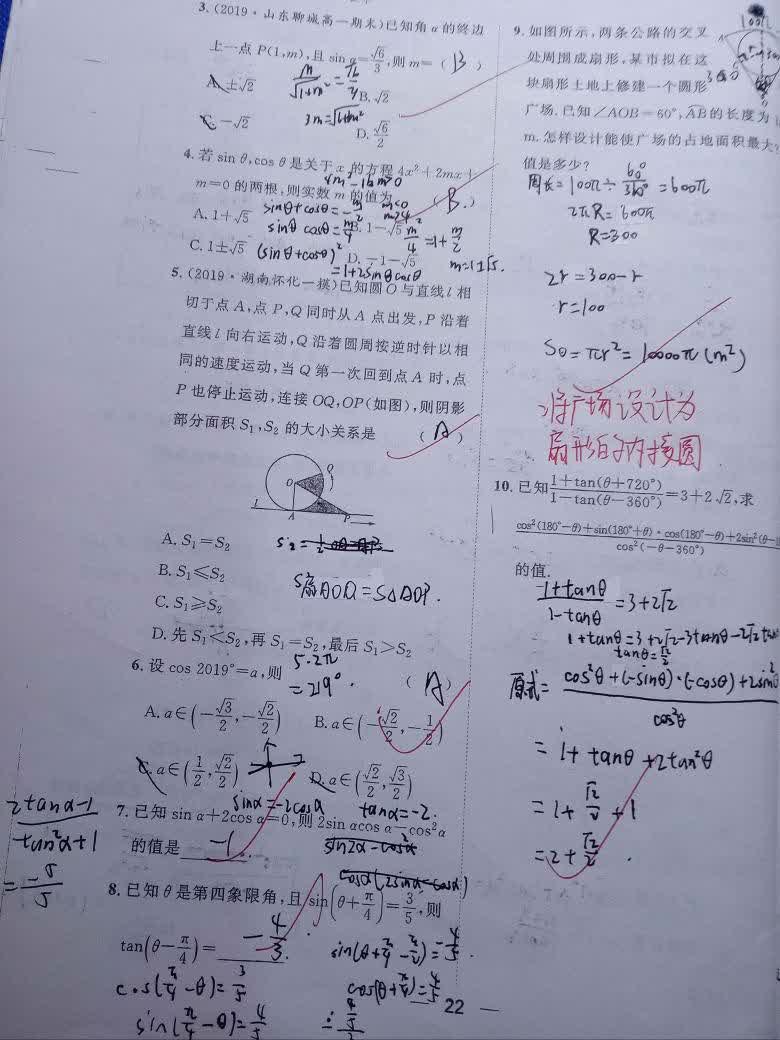 3. (2019·山东聊城高一期末)已知角α的终边
上一点 P(1,m),且 sin α=√6/3,则 m=( B )
A. ±√2
B. √2
m/√(1+m²)
3m=√(1+m²)
C. -√2
D. √6/2
4. 若 sin θ,cos θ 是关于 x 的方程 4x²+2mx+
4m²-16m≥0
m=0 的两根,则实数 m 的值为 ( B. )
A. 1+√5
B. 1-√5
C. 1±√5
D. -1-√5
sinθ+cosθ=-m/2
m≤0
m≥4
sinθ cosθ=m/4
m²/4=1+m/2
(sinθ+cosθ)²
=1+2sinθcosθ
m=1±√5.
5. (2019·湖南怀化一摸)已知圆 O 与直线 l 相
切于点 A,点 P,Q 同时从 A 点出发,P 沿着
直线 l 向右运动,Q 沿着圆周按逆时针以相
同的速度运动,当 Q 第一次回到点 A 时,点
P 也停止运动,连接 OQ,OP(如图),则阴影
部分面积 S₁,S₂ 的大小关系是 ( A )
O
Q
l
A
P
A. S₁=S₂
B. S₁≤S₂
S扇AOQ=S△AOP.
C. S₁≥S₂
D. 先 S₁<S₂,再 S₁=S₂,最后 S₁>S₂
6. 设 cos 2019°=a,则 ( A )
5·2π
=219°.
A. a∈(-√3/2,-√2/2)
B. a∈(-√2/2,-1/2)
C. a∈(1/2,√2/2)
D. a∈(√2/2,√3/2)
sinα=-2cosα
tanα=-2.
7. 已知 sin α+2cos α=0,则 2sin αcos α-cos²α
的值是 -1 .
(2tanα-1)/(tan²α+1)
=-5/5
8. 已知 θ 是第四象限角,且 sin(θ+π/4)=3/5,则
tan(θ-π/4)= -4/3.
sin(θ+π/4-π/2)=-4/5.
cos(π/4-θ)=3/5
cos(θ+π/4)=4/5
sin(π/4-θ)=4/5
22
9. 如图所示,两条公路的交叉
处周围成扇形,某市拟在这
块扇形土地上修建一个圆形
广场.已知∠AOB=60°,AB的长度为
m.怎样设计能使广场的占地面积最大?
值是多少?
100π
周长=100π÷60°/360°=600π
2πR=600π
R=300
2r=300-r
r=100
S⊙=πr²=10000π(m²)
将广场设计为
扇形的内接圆
10. 已知(1+tan(θ+720°))/(1-tan(θ-360°))=3+2√2,求
(cos²(180°-θ)+sin(180°+θ)·cos(180°-θ)+2sin²(θ-1
cos²(-θ-360°)
的值.
(1+tanθ)/(1-tanθ)=3+2√2
1+tanθ=3+2√2-3tanθ-2√2tan
tanθ=√2/2
原式=(cos²θ+(-sinθ)·(-cosθ)+2sin²θ)/cos²θ
=1+tanθ+2tan²θ
=1+√2/2+1
=2+√2/2.